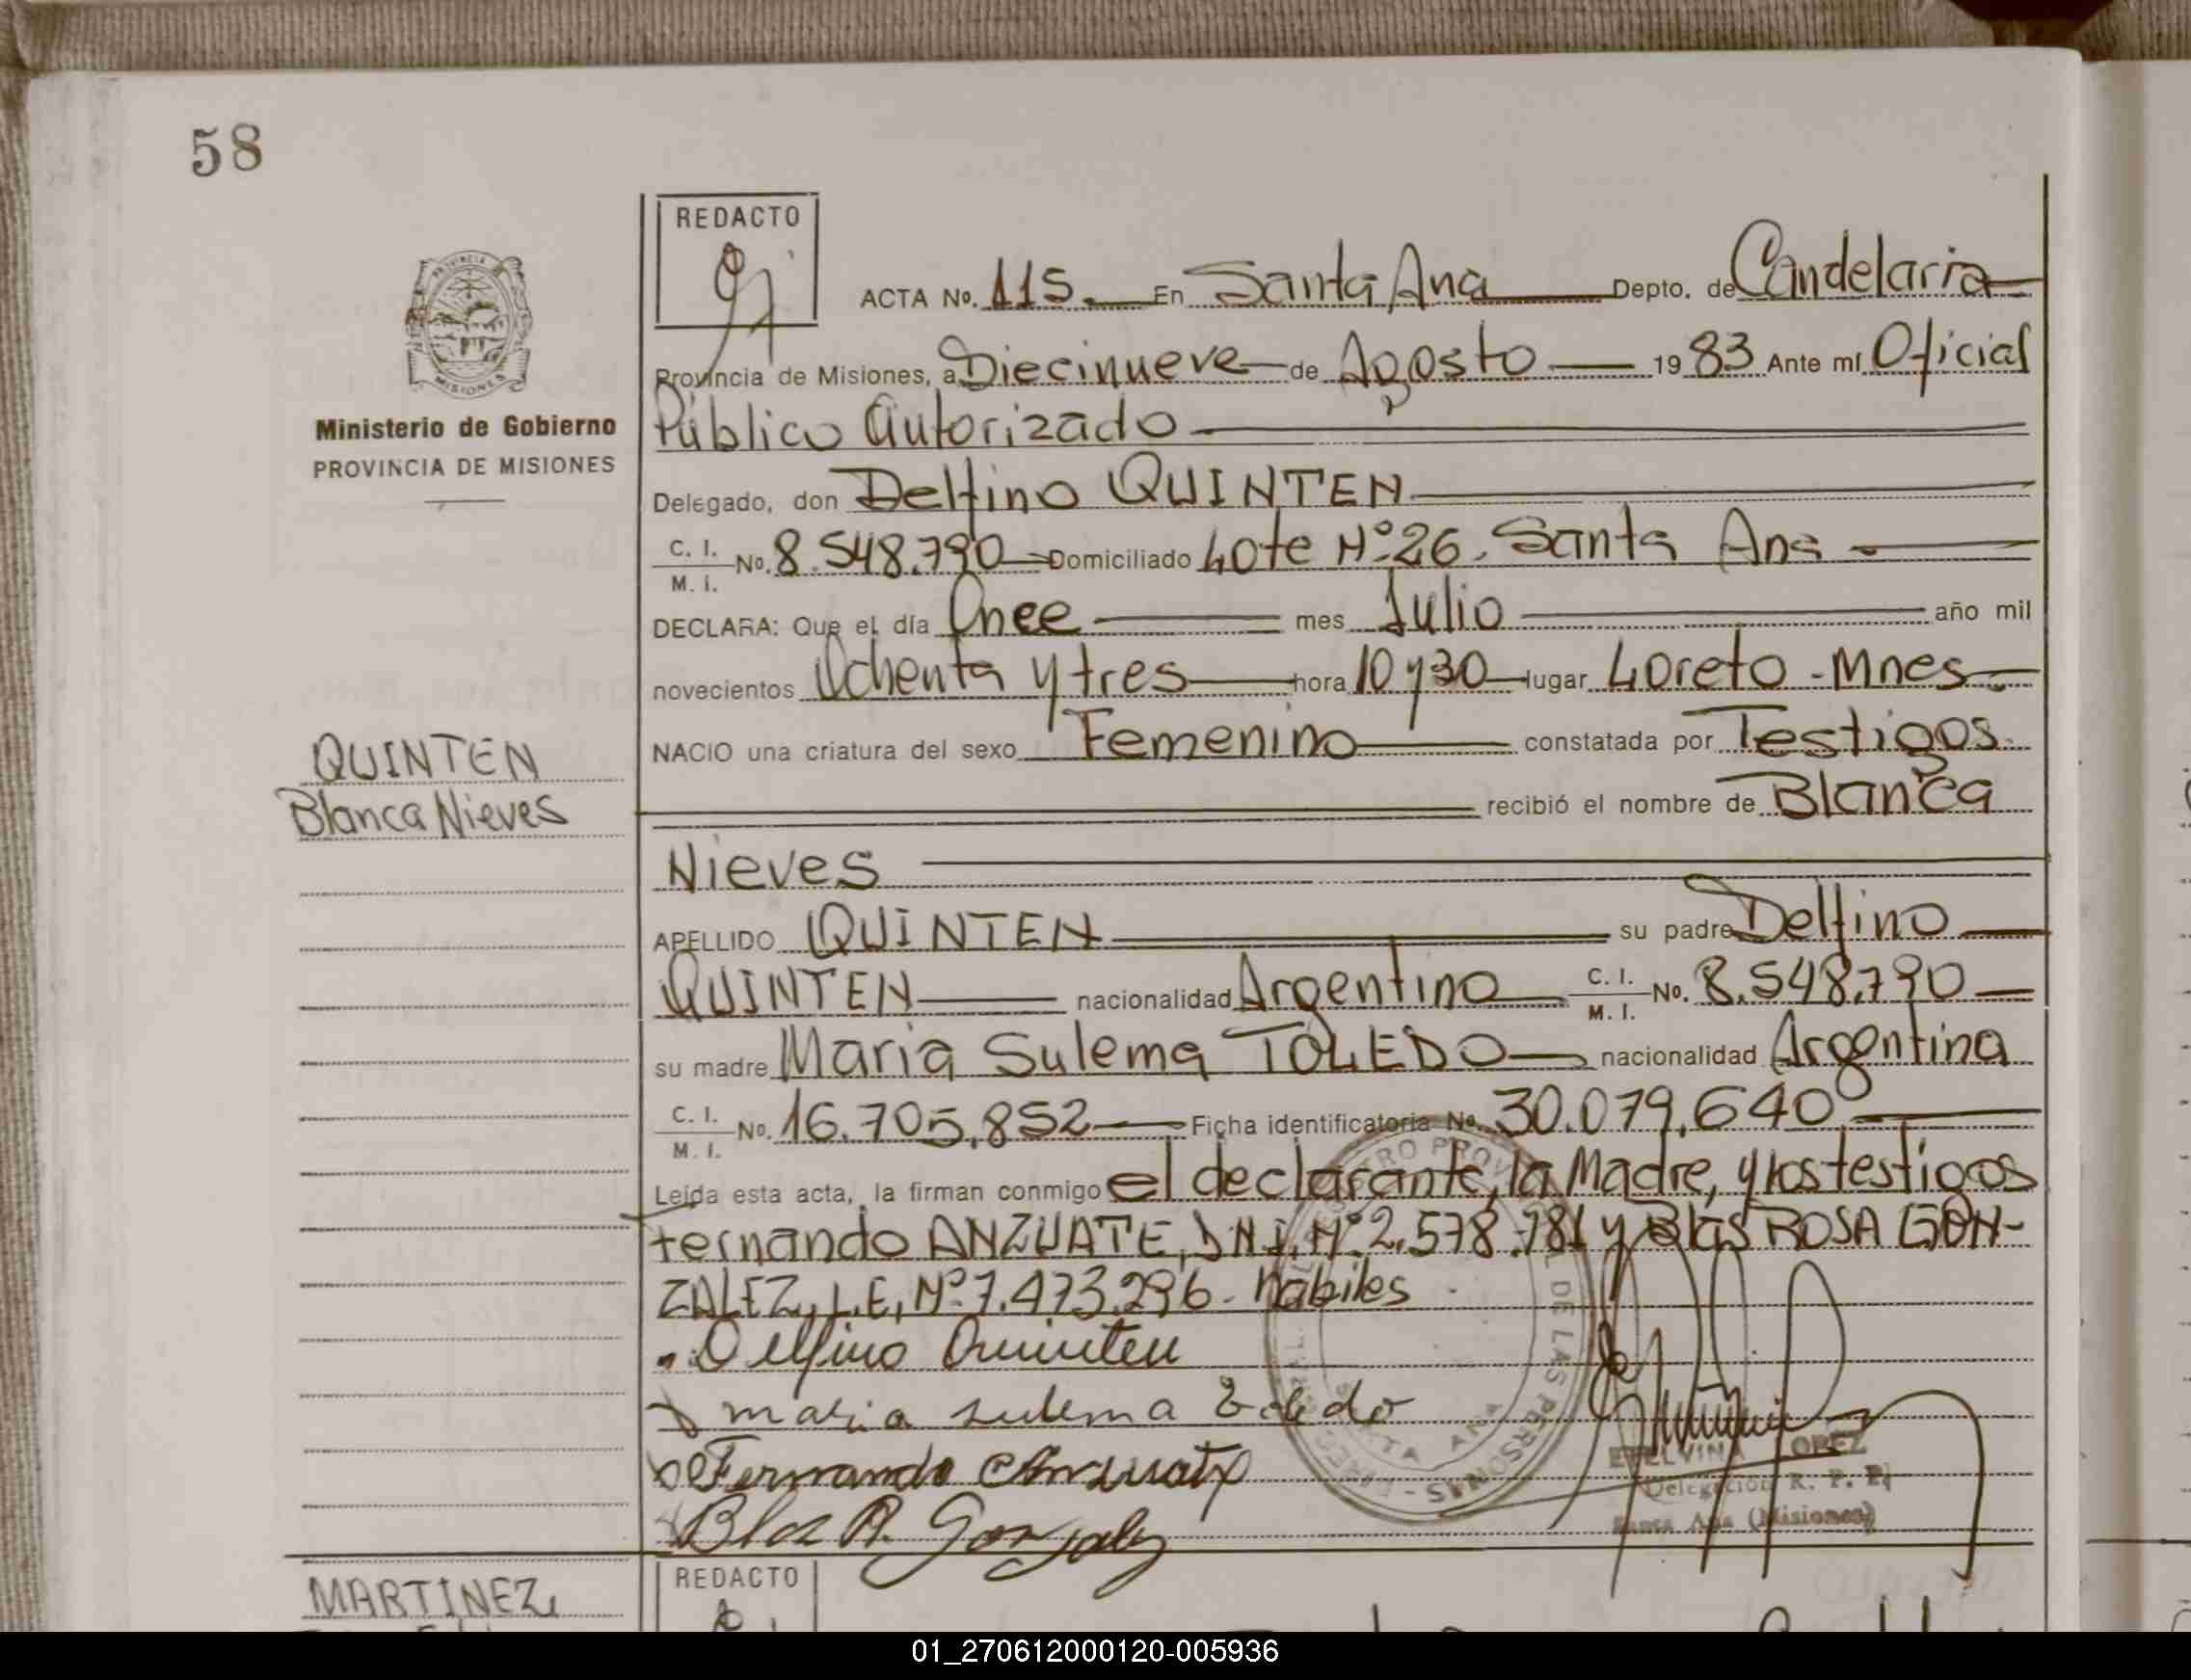 58
REDACTO
PROVINCIA DE
MISIONES
Ministerio de Gobierno
PROVINCIA DE MISIONES
ACTA No. 115. En Santa Ana Depto. de Candelaria
Provincia de Misiones, a Diecinueve de Agosto 1983 Ante mí Oficial
Público Autorizado
Delegado, don Delfino QUINTEN
C. I.
M. I. No. 8.548.790 Domiciliado Lote Nº 26. Santa Ana
DECLARA: Que el día Once mes Julio año mil
novecientos Ochenta y tres hora 10 y 30 lugar Loreto - Mnes
NACIO una criatura del sexo Femenino constatada por Testigos
QUINTEN
Blanca Nieves
recibió el nombre de Blanca
Nieves
APELLIDO QUINTEN su padre Delfino
QUINTEN nacionalidad Argentino C. I. M. I. No. 8.548.790
su madre Maria Sulema TOLEDO nacionalidad Argentina
C. I.
M. I. No. 16.705.852 Ficha identificatoria No. 30.079.640
Leída esta acta, la firman conmigo el declarante, la Madre, y los testigos
Fernando ANZUATE, DNI. Nº 2.578.781 y Blas ROSA GON-
ZALEZ, L.E, Nº 7.473.296. habiles
Delfino Quinten
maria sulema Toledo
Fernando Anzuate
Blas R. Gonzalez
DE LAS PERSONAS
SANTA ANA
ETELVINA LOPEZ
Delegación R. P. P.
Santa Ana (Misiones)
MARTINEZ,
REDACTO
01_270612000120-005936